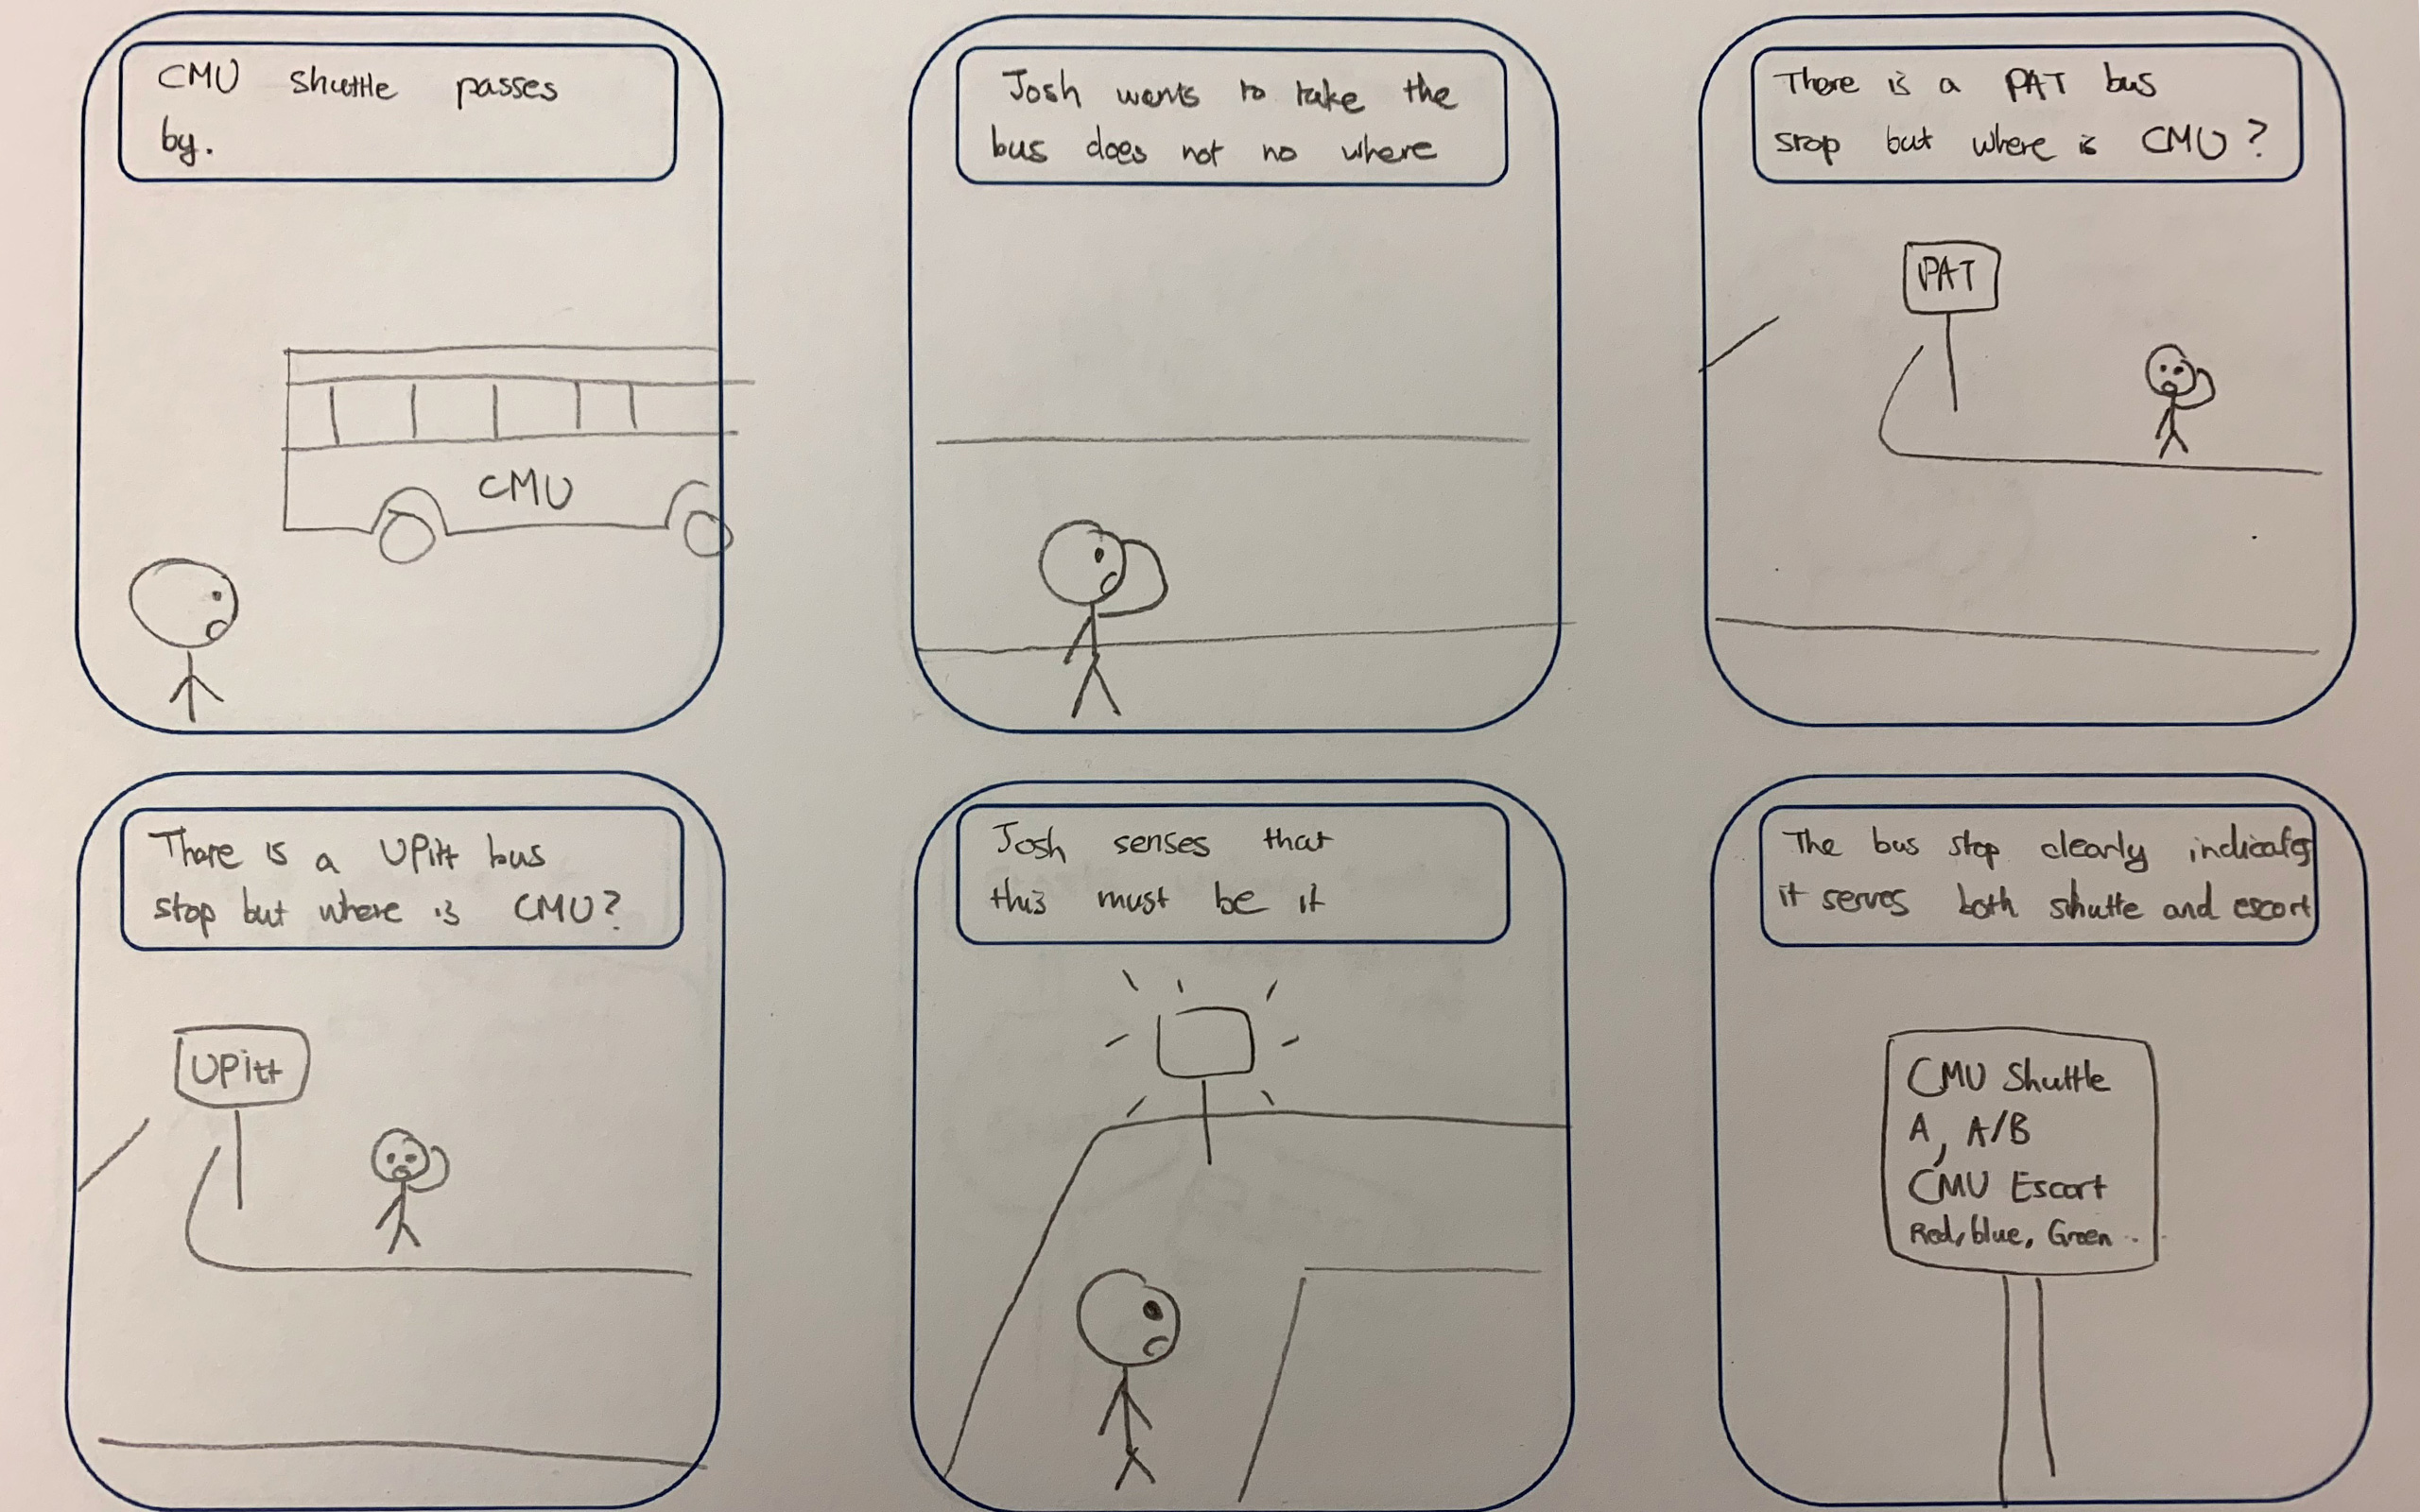 CMU shuttle passes
by.
CMU
Josh wants to take the
bus does not no where
There is a PAT bus
stop but where is CMU?
PAT
There is a UPitt bus
stop but where is CMU?
UPitt
Josh senses that
this must be it
The bus stop clearly indicates
it serves both shuttle and escort
CMU Shuttle
A, A/B
CMU Escort
Red, blue, Green ..